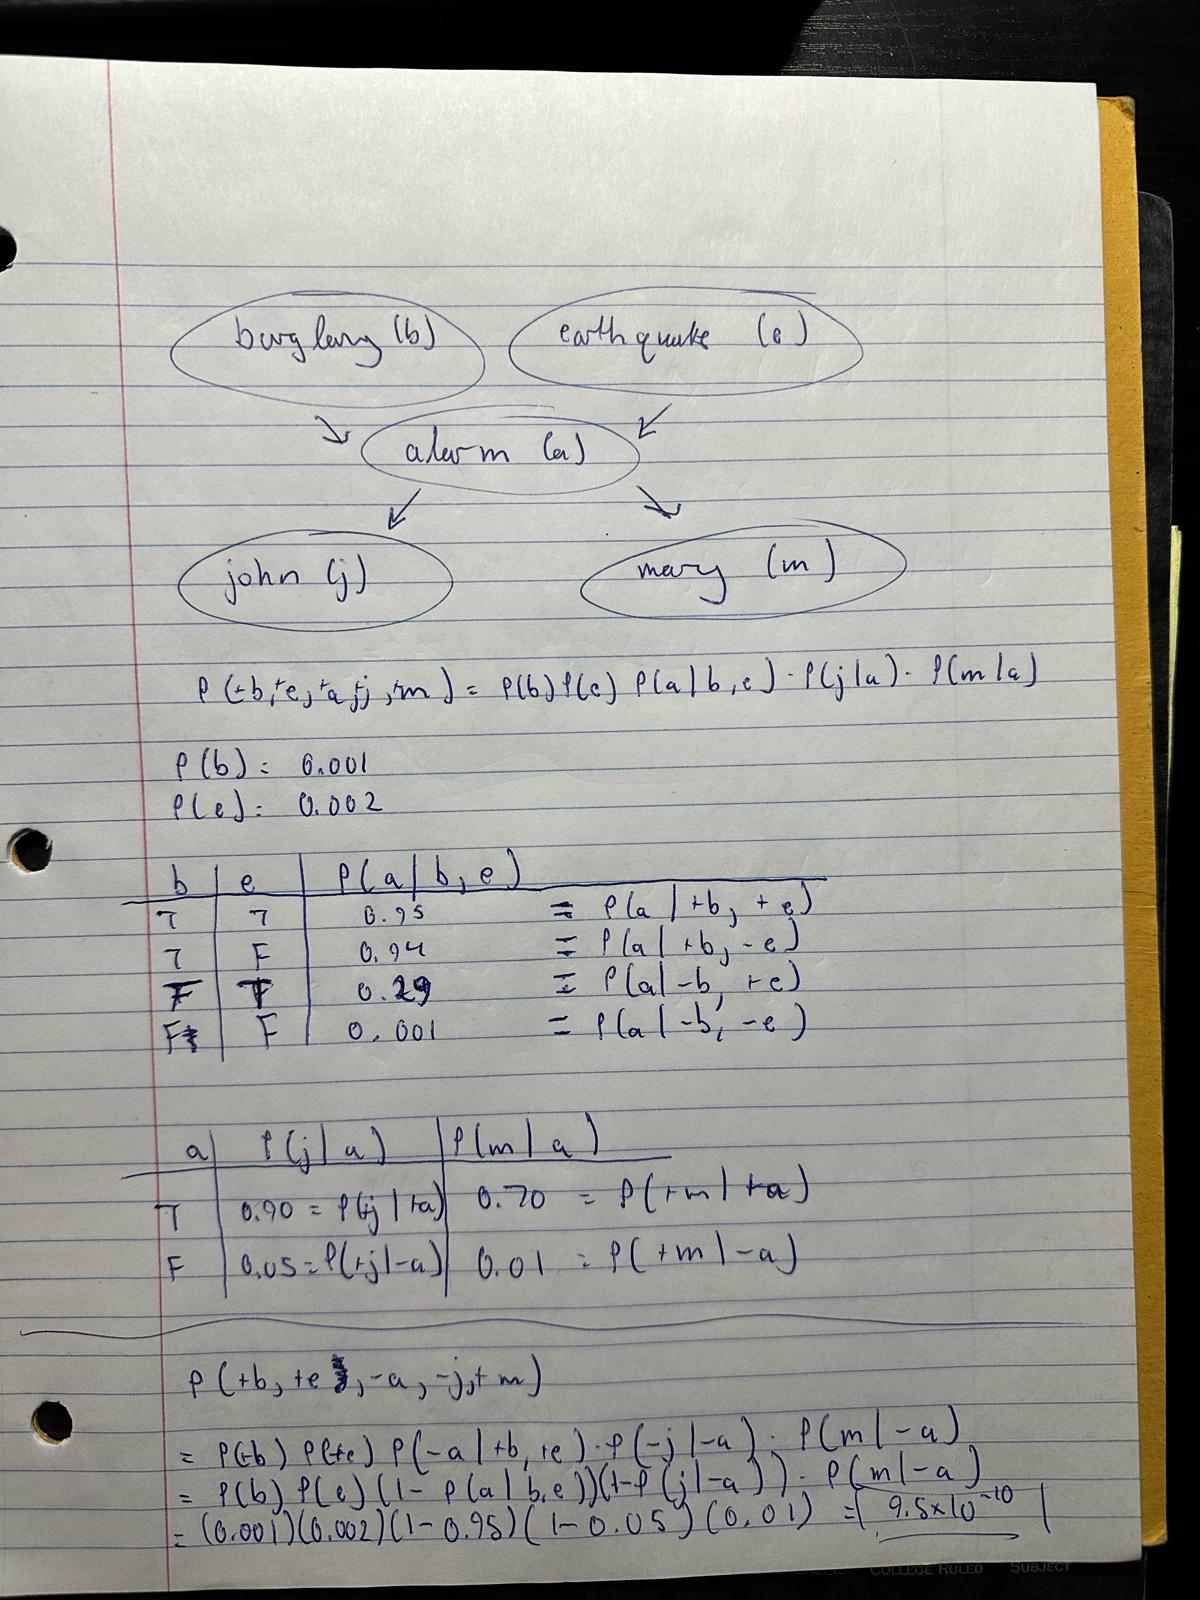 burglary (b) earthquake (e)
alarm (a)
john (j) mary (m)
P(+b,+e,+a,+j,+m) = P(b)P(e) P(a|b,e)·P(j|a)· P(m|a)
P(b) = 0.001
P(e) = 0.002
b e P(a|b,e)
T T 0.95 = P(a|+b,+e)
T F 0.94 = P(a|+b,-e)
F T 0.29 = P(a|-b,+e)
F F 0.001 = P(a|-b,-e)
a P(j|a) P(m|a)
T 0.90 = P(+j|+a) 0.70 = P(+m|+a)
F 0.05 = P(+j|-a) 0.01 = P(+m|-a)
P(+b,+e,-a,-j,+m)
= P(+b) P(+e) P(-a|+b,+e)·P(-j|-a)· P(m|-a)
= P(b) P(e)(1-P(a|b,e))(1-P(j|-a))· P(m|-a)
= (0.001)(0.002)(1-0.95)(1-0.05)(0.01) = 9.5×10⁻¹⁰
COLLEGE RULED SUBJECT